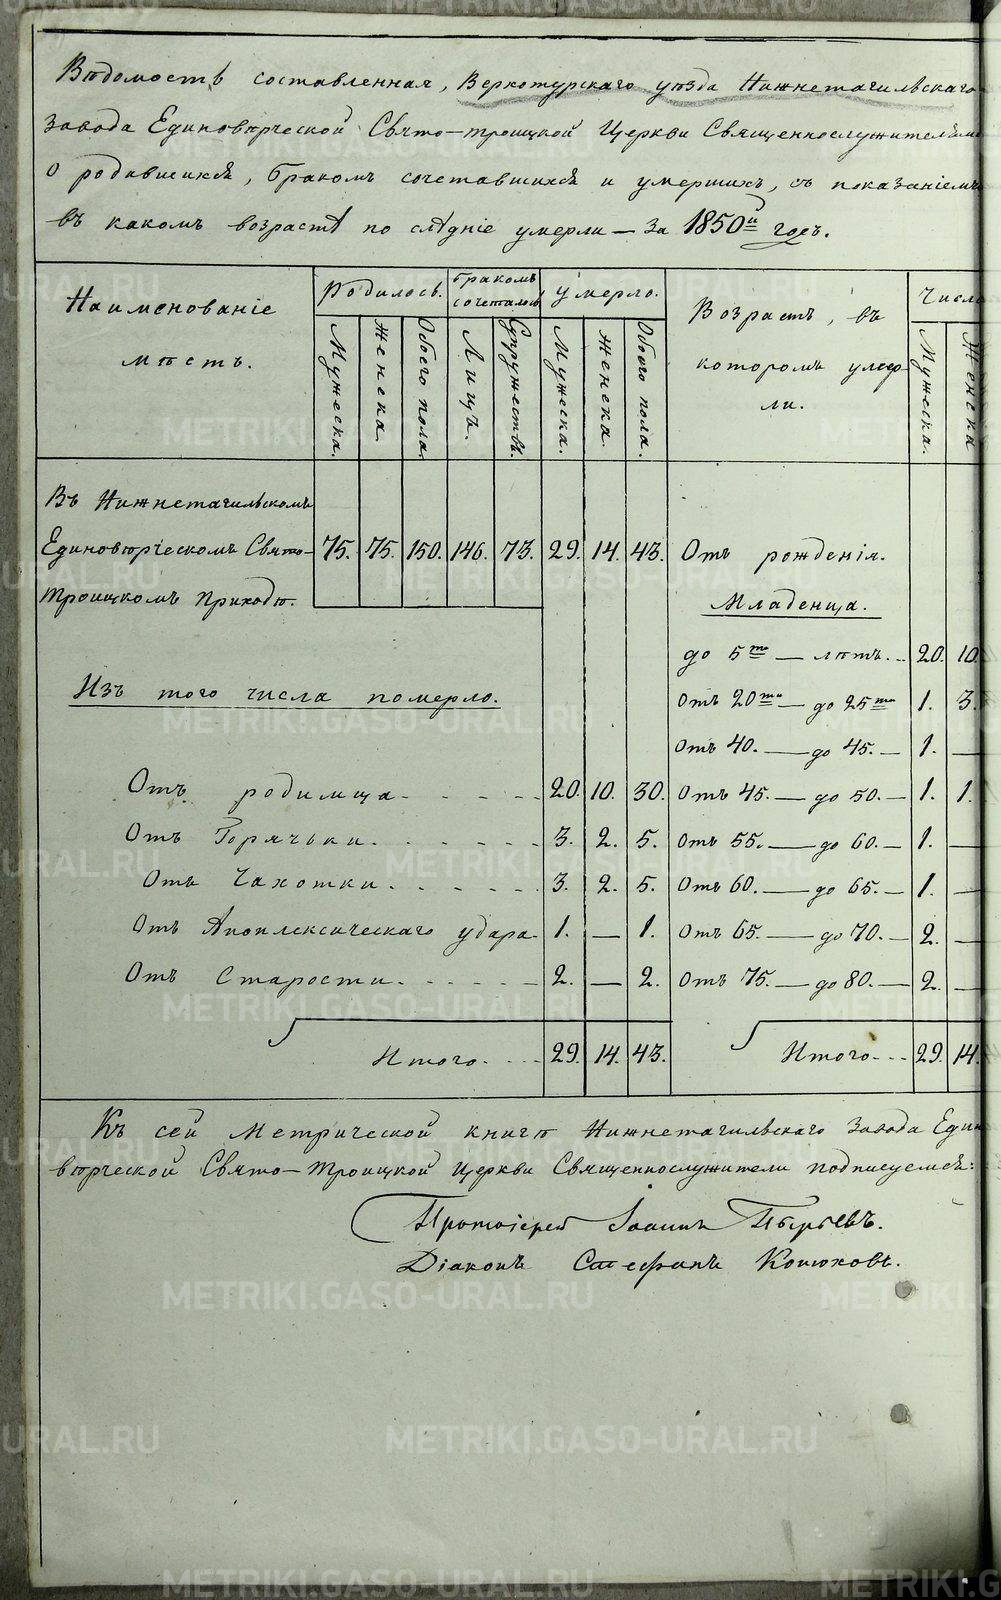 Вѣдомость составленная, Верхотурскаго уѣзда Нижнетагильскаго
завода Единовѣрческой Свято-троицкой Церкви Священнослужителями
о родившихся, бракомъ сочетавшихся и умершихъ, съ показаніемъ
въ какомъ возрастѣ послѣдніе умерли – за 1850й годъ.
Наименованіе мѣстъ. Родилось. бракомъ сочеталось умерло. Возрастъ, въ которомъ умерли. Число
Мужеска. Женска. Обоего пола. Лицъ. Супружествъ. Мужеска. Женска. Обоего пола. Мужеска. Женска
Въ Нижнетагильскомъ
Единовѣрческомъ Свято- 75. 75. 150. 146. 73. 29. 14. 43. Отъ рожденія.
Троицкомъ Приходѣ. Младенца.
до 5ти — лѣтъ. 20. 10.
Изъ того числа померло. Отъ 20ти — до 25ти 1. 3.
Отъ 40. — до 45. — 1. —
Отъ родимца 20. 10. 30. Отъ 45. — до 50. — 1. 1.
Отъ Горячьки 3. 2. 5. Отъ 55. — до 60. — 1. —
Отъ Чахотки 3. 2. 5. Отъ 60. — до 65. — 1. —
Отъ Апоплексическаго удара 1. — 1. Отъ 65. — до 70. — 2. —
Отъ Старости 2. — 2. Отъ 75. — до 80. — 2. —
Итого 29. 14. 43. Итого 29. 14.
Къ сей Метрической книгѣ Нижнетагильскаго Завода Едино
вѣрческой Свято-Троицкой Церкви Священнослужители подписуемся:
Протоіерей Іоаннъ Пырьевъ.
Діаконъ Стефанъ Конюховъ.
METRIKI.GASO-URAL.RU